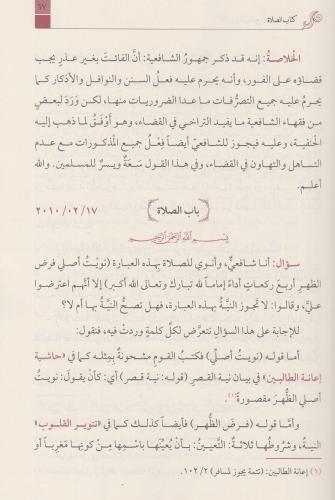 كتاب الصلاة
٦٧
الخلاصة: إنه قد ذكر جمهورُ الشافعية: أنَّ الفائتَ بغير عذرٍ يجب
قضاؤه على الفور، وأنه يحرم عليه فعلُ السنن والنوافل والأذكار كما
يحرمُ عليه جميع التصرُّفات ما عدا الضروريات منها، لكن وَرَدَ لبعضٍ
من فقهاء الشافعية ما يفيد التراخي في القضاء، وهو أَوْفَقُ لما ذهب إليه
الحنفية، وعليه فيجوز للشافعيِّ أيضاً فِعْلُ جميع المذكورات مع عدم
التساهل والتهاون في القضاء، وفي هذا القول سَعَةٌ ويسرٌ للمسلمين. والله
أعلم.
باب الصلاة
٢٠١٠/٠٢/١٧
بسم الله الرحمن الرحيم
سؤال: أنا شافعيٌّ، وأنوي للصلاة بهذه العبارة (نويتُ أصلِّي فرض
الظهر أربع ركعاتٍ أداءً إماماً لله تبارك وتعالى الله أكبر) إلا أنَّهم اعترضوا
عليَّ، وقالوا: لا تجوز النيَّةُ بهذه العبارة، فهل تصحُّ النيَّة بها أم لا؟
للإجابة على هذا السؤال نتعرَّض لكلِّ كلمةٍ وردتْ فيه، فنقول:
أما قوله (نويتُ أصلِّي) فكتبُ القوم مشحونةٌ بمِثله كما في «حاشية
إعانة الطالبين» في بيان نية القصر (قوله: نية قصر) أي: كأنْ يقول: نويتُ
أصلي الظُّهرَ مقصورةً(١)
وأمَّا قوله (فرضَ الظُّهر) فأيضاً كذلك كما في «تنوير القلوب»
النيةُ، وشروطُها ثلاثةٌ: التعيينُ: بأنْ يُعيِّنَها باسمِها مِن كونِها مَغرِباً أو
(١) إعانة الطالبين: (تتمة يجوز لمسافر) ١٠٢/٢.